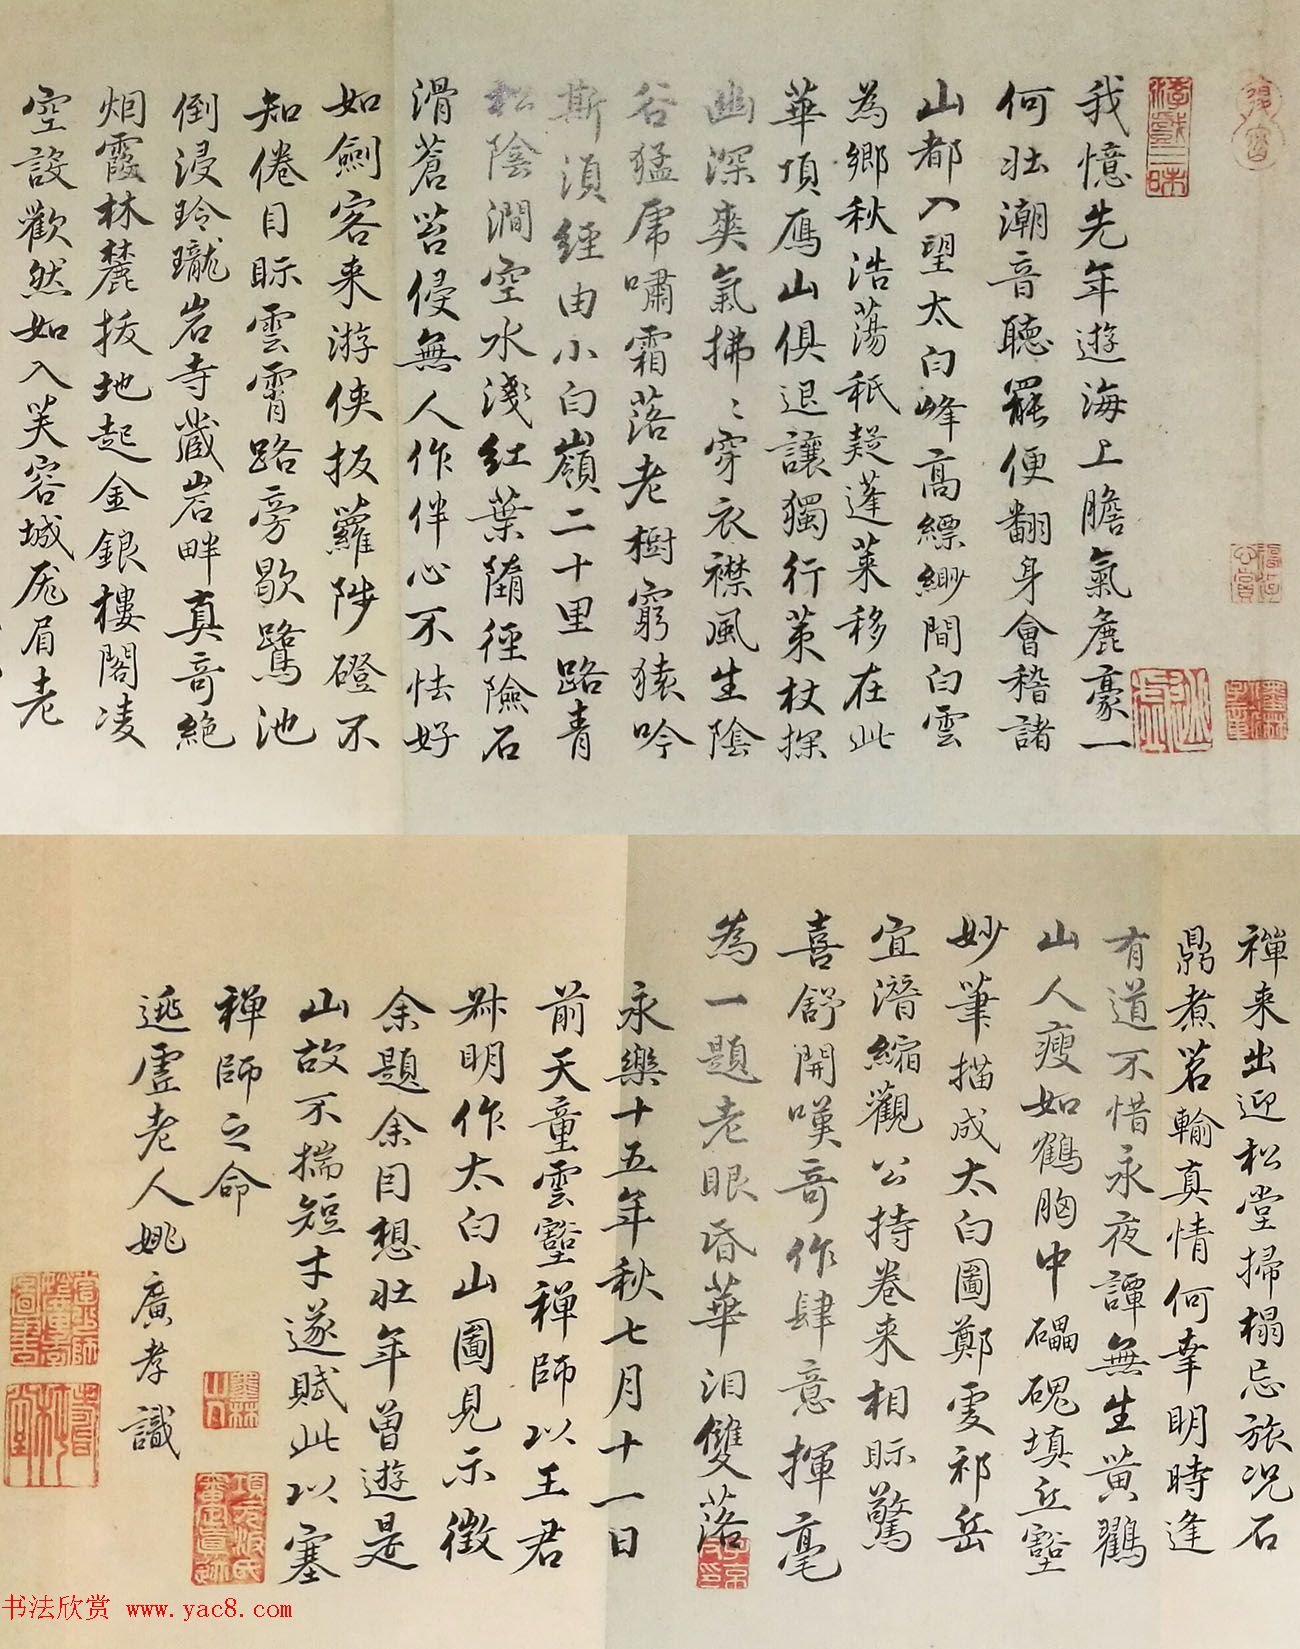 我憶先年遊海上膽氣麁豪一
何壯潮音聽罷便翻身會稽諸
山都入望太白峰高縹緲間白雲
為鄉秋浩蕩秖疑蓬萊移在此
華頂鴈山俱退讓獨行策杖探
幽深爽氣拂〻穿衣襟風生陰
谷猛虎嘯霜落老樹窮猿吟
斯須經由小白嶺二十里路青
松陰澗空水淺紅葉墮徑險石
滑蒼苔侵無人作伴心不怯好
如劍客来游俠扳蘿陟磴不
知倦目眎雲霄路旁歇鷺池
倒浸玲瓏岩寺藏岩畔真奇絶
烟霞林麓拔地起金銀樓閣凌
空設歡然如入芙容城厖眉老
禪来出迎松堂掃榻忘旅况石
鼎煮茗輸真情何幸明時逢
有道不惜永夜譚無生黄鶴
山人瘦如鶴胸中礧磈填丘壑
妙筆描成太白圖鄭虔祁岳
宜潛縮觀公持卷来相眎驚
喜舒開嘆奇作肆意揮毫
為一題老眼昏華泪雙落
永樂十五年秋七月十一日
前天童雲壑禪師以王君
叔明作太白山圖見示徵
余題余因想壯年曽遊是
山故不揣短才遂賦此以塞
禅師之命
逃虛老人姚廣孝識
书法欣赏 www.yac8.com